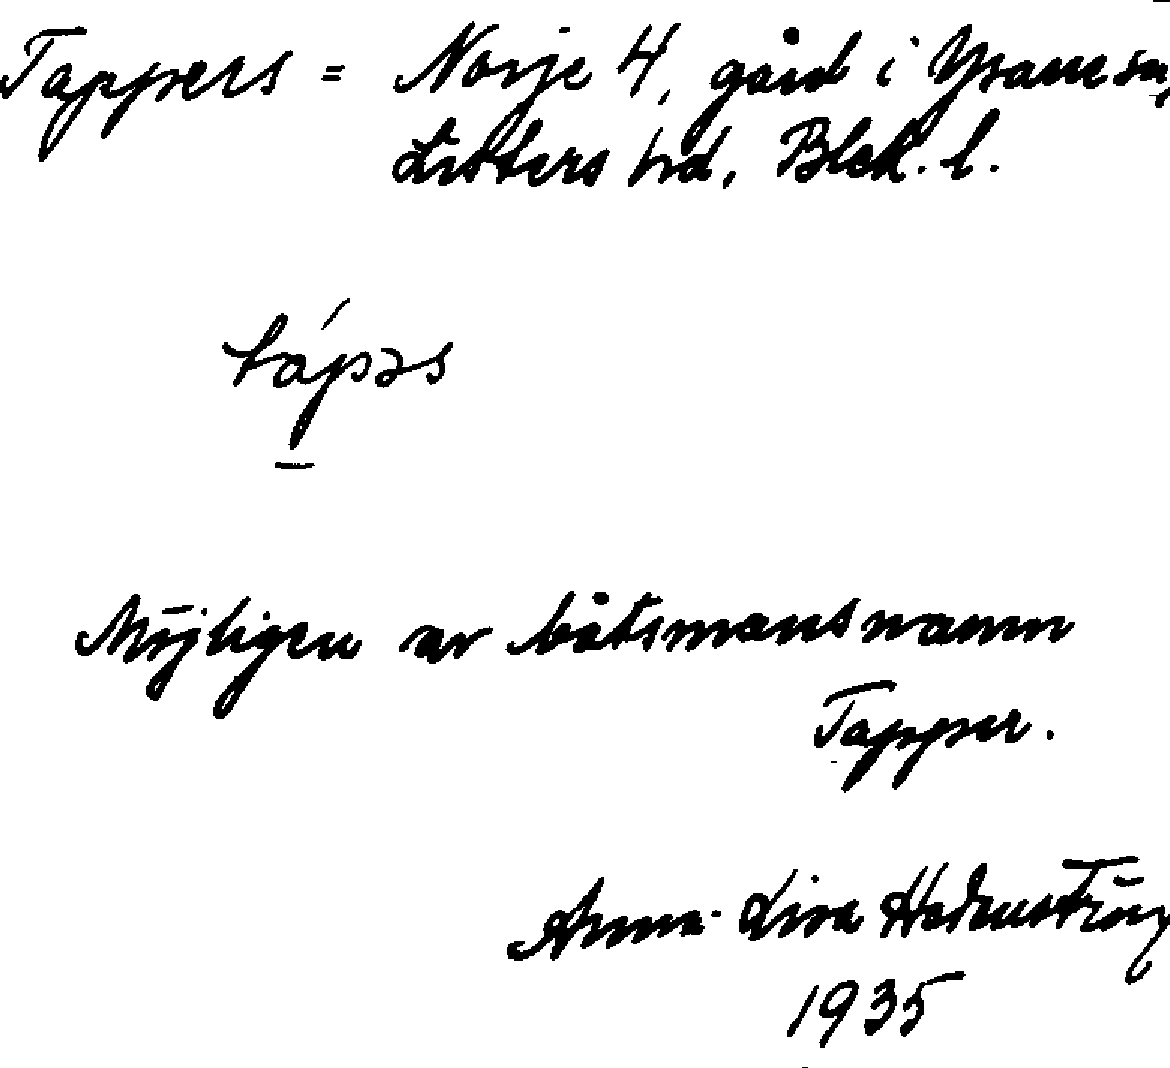 Tappers = Norje 4, gård i Ysane sn,
Listers hd, Blek. l.
tápəs
Möjligen av båtsmansnamn
Tapper.
Anna-Lisa Hedenström
1935